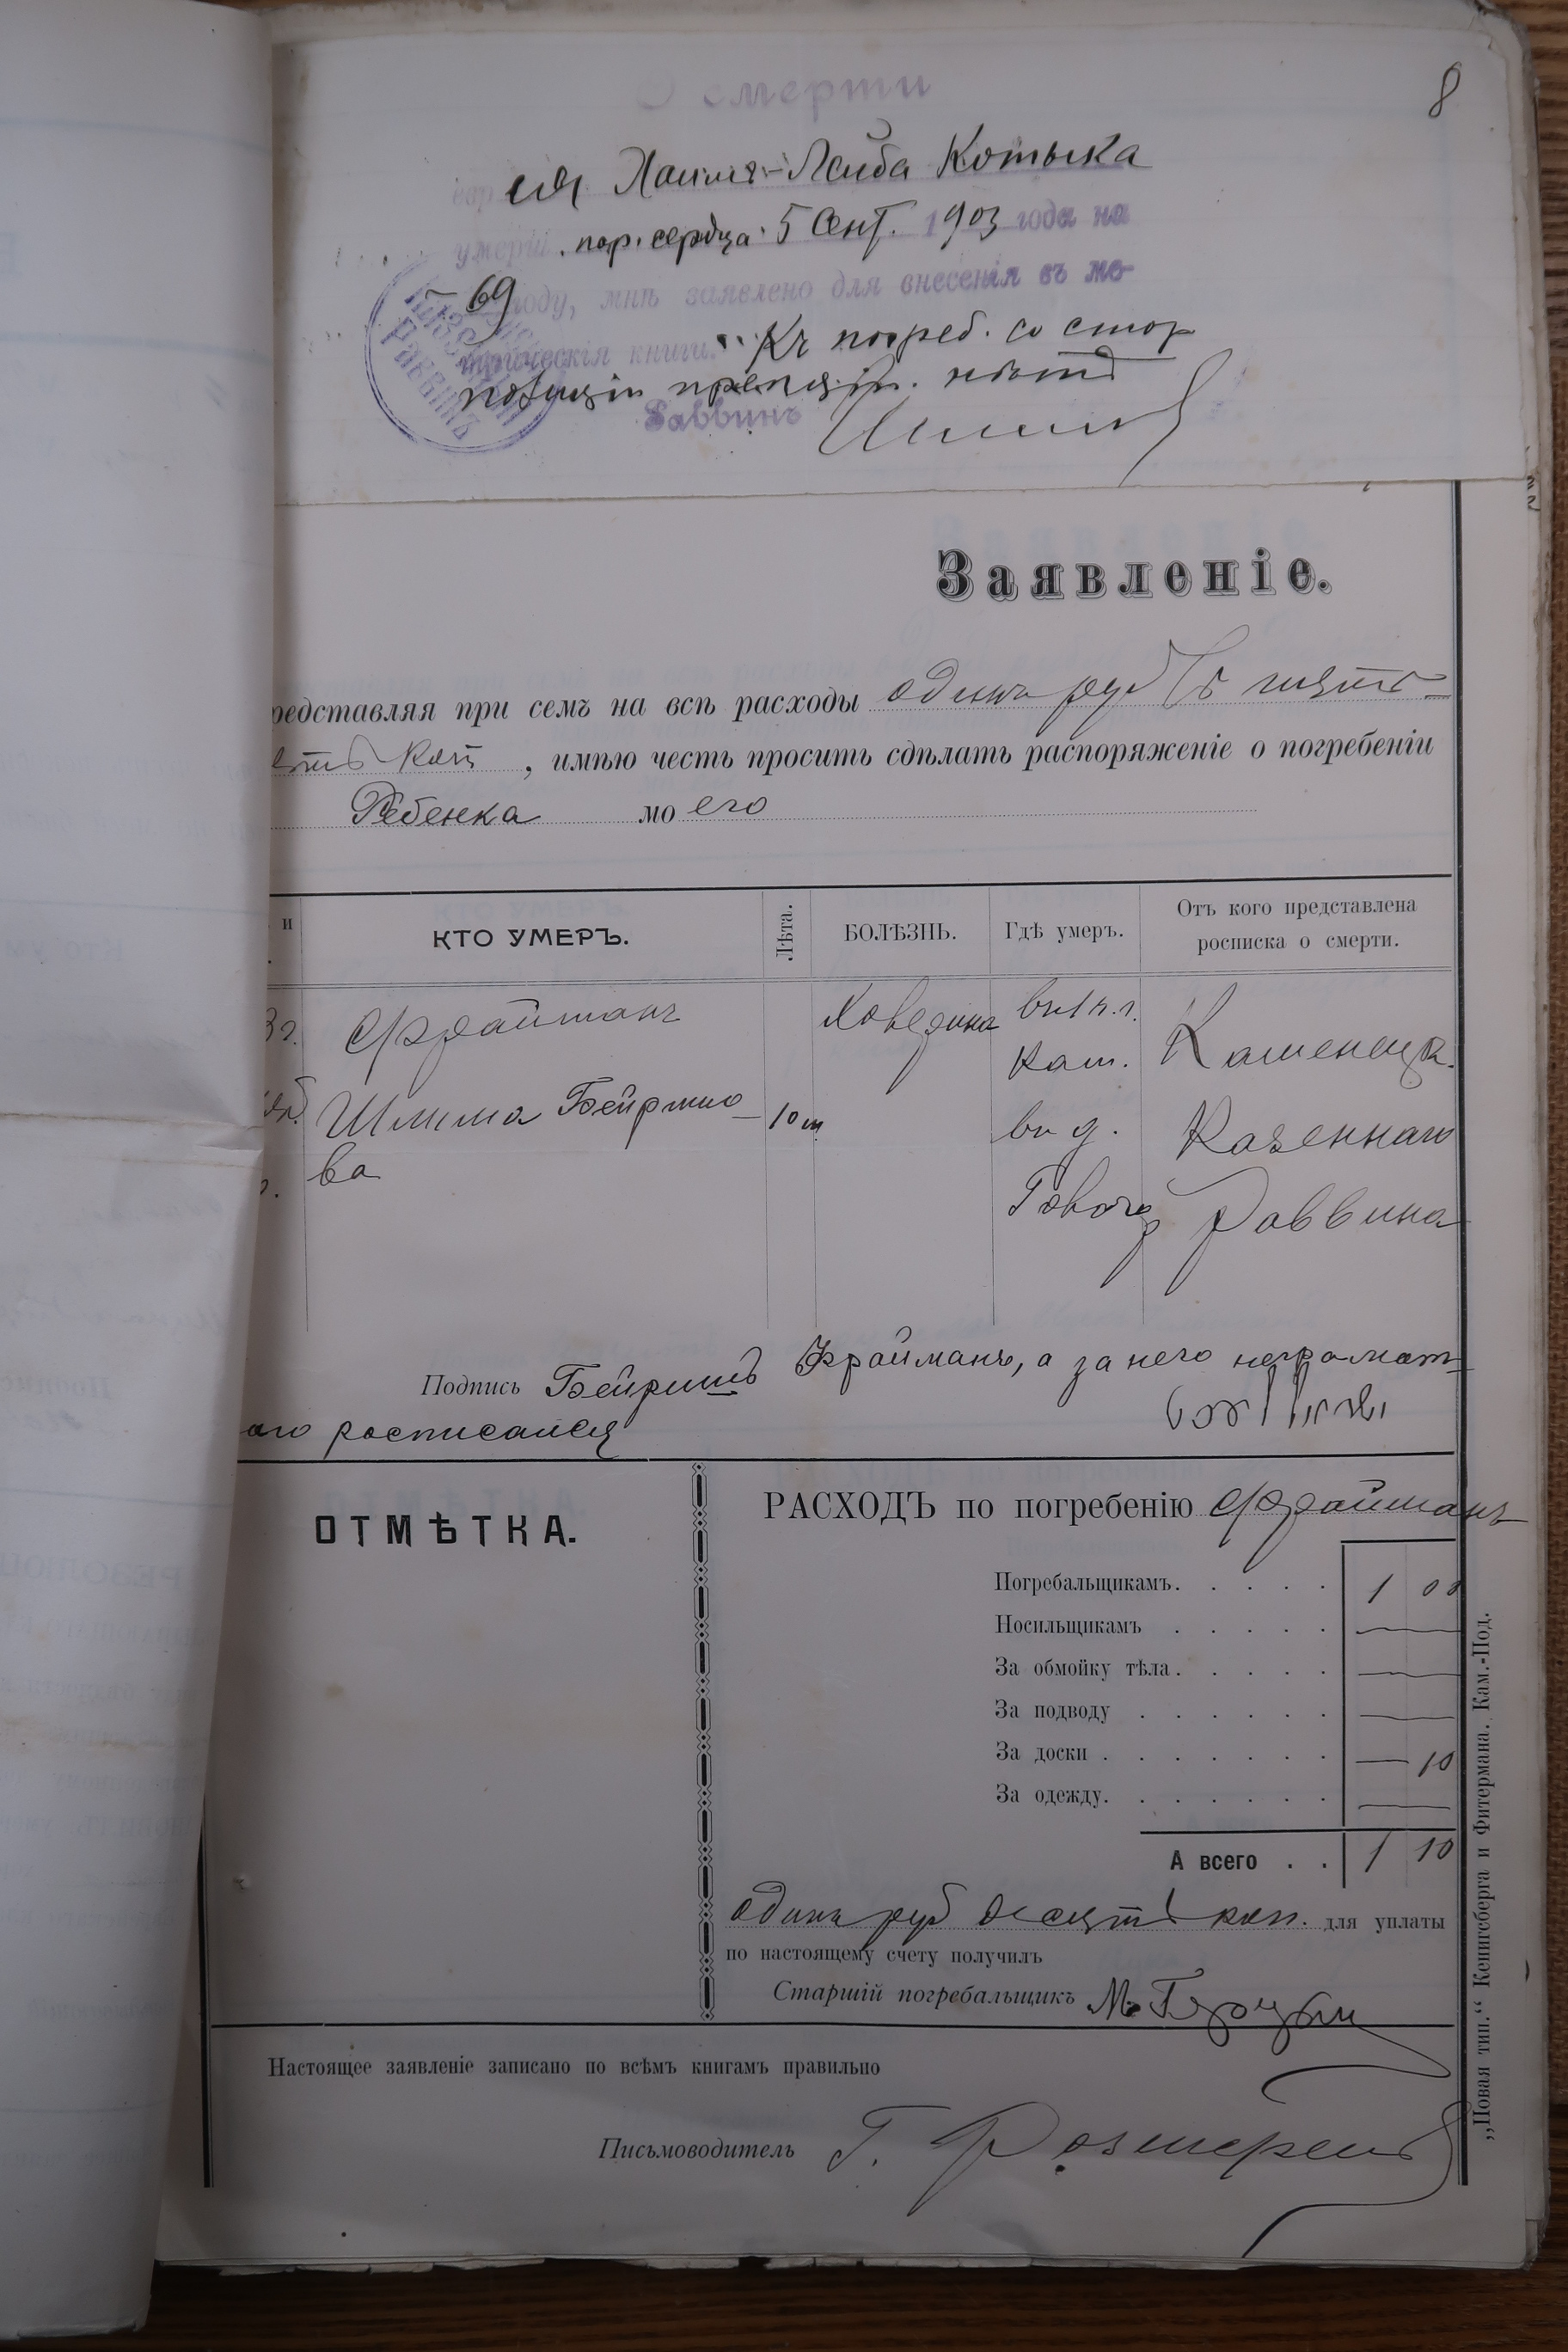 8
О смерти
ея Хаимъ-Лейба Котыка
умерш. пор. сердца 5 Сент. 1903 года на
69 году, мнѣ заявлено для внесенія въ ме-
трическія книги. Къ погреб. со стор
полиціи препят. нѣтъ
Раввинъ
Заявленіе.
редставляя при семъ на всѣ расходы одинъ руб
коп , имѣю честь просить сдѣлать распоряженіе о погребеніи
Ребенка моего
и КТО УМЕРЪ. Лѣта. БОЛѢЗНЬ. Гдѣ умеръ. Отъ кого представлена
росписка о смерти.
3 г. Фрайманъ вн 1 п. г.
Кам. Каменецк.
Шлима Бейришо- 10 м вн д. Казеннаго
ва Раввина
Подпись Бейришъ Фрайманъ, а за него неграмотн
аго росписался
ОТМѢТКА.
РАСХОДЪ по погребенію Фрайманъ
Погребальщикамъ. 1 00
Носильщикамъ —
За обмойку тѣла. —
За подводу —
За доски . — 10
За одежду. —
А всего . . 1 10
одинъ руб десять коп. для уплаты
по настоящему счету получилъ
Старшій погребальщикъ М.
Настоящее заявленіе записано по всѣмъ книгамъ правильно
Письмоводитель Г.
„Новая тип.“ Кенигсберга и Фитермана. Кам.-Под.